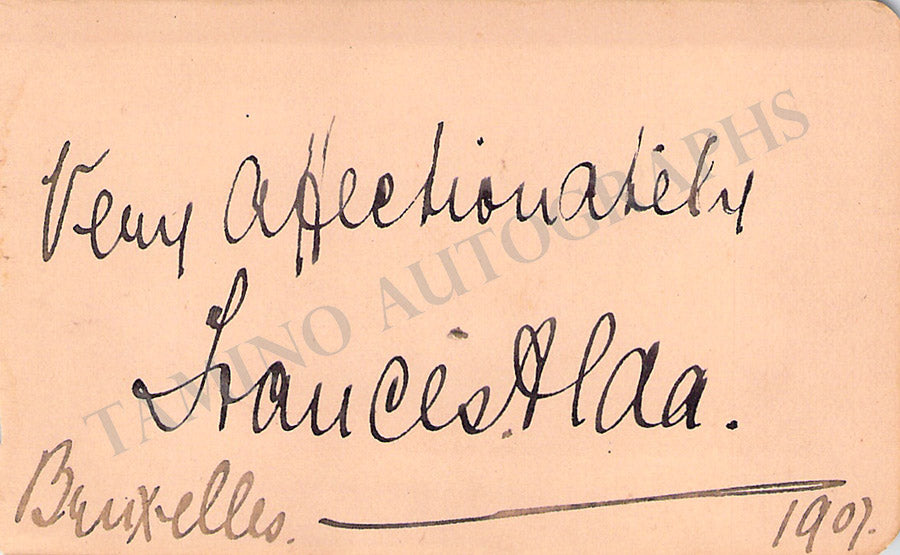 Very affectionately
Francis Alda.
Bruxelles. 1907.
TAMINO AUTOGRAPHS